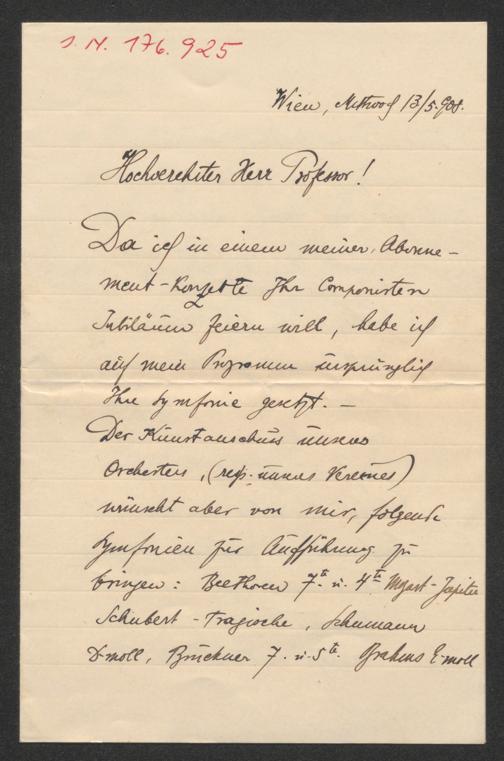 I. N. 176.925
Wien, Mittwoch 13/5.908.
Hochverehrter Herr Professor!
Da ich in einem meiner Abonne-
ment-Konzerte Ihr Componisten
Jubiläum feiern will, habe ich
auf mein Programm ursprünglich
Ihre Symfonie gesetzt. —
Der Kunstausschuss unseres
Orchesters, (resp. unseres Vereines)
wünscht aber von mir, folgende
Symfonien zur Aufführung zu
bringen: Beethoven 7te u. 4te Mozart-Jupiter
Schubert - Tragische, Schumann
D-moll, Bruckner 7. u. 5te. Brahms E-moll